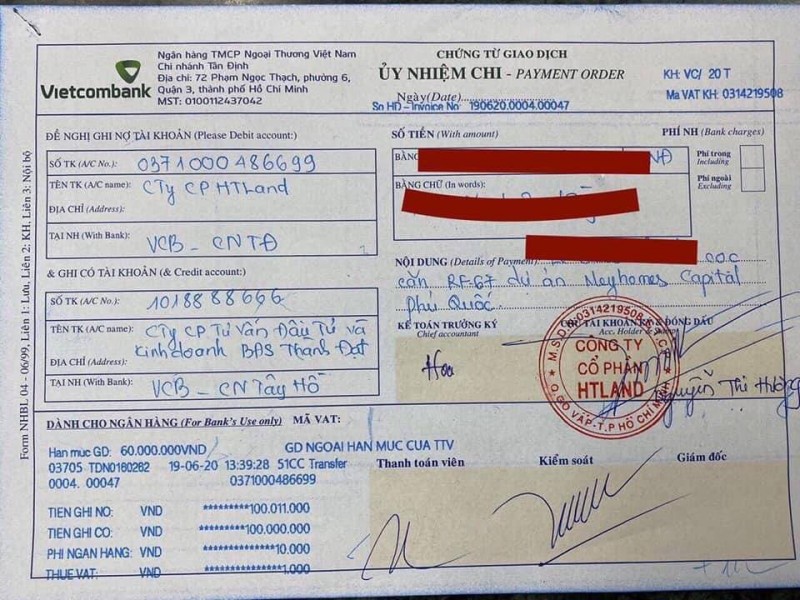 Vietcombank
Ngân hàng TMCP Ngoại Thương Việt Nam
Chi nhánh Tân Định
Địa chỉ: 72 Phạm Ngọc Thạch, phường 6,
Quận 3, thành phố Hồ Chí Minh
MST: 0100112437042
CHỨNG TỪ GIAO DỊCH
ỦY NHIỆM CHI - PAYMENT ORDER
Ngày (Date)
So HD – Invoice No: 190620.0004.00047
KH: VC/ 20 T
Ma VAT KH: 0314219508
ĐỀ NGHỊ GHI NỢ TÀI KHOẢN (Please Debit account:)
SỐ TK (A/C No.): 0371000486699
TÊN TK (A/C name): CTy CP HTLand
ĐỊA CHỈ (Address):
TẠI NH (With Bank): VCB - CN TĐ
& GHI CÓ TÀI KHOẢN (& Credit account:)
SỐ TK (A/C No.): 1018888666
TÊN TK (A/C name): CTy CP Tư Vấn Đầu Tư và
Kinh doanh BĐS Thành Đạt
ĐỊA CHỈ (Address):
TẠI NH (With Bank): VCB - CN Tây Hồ
SỐ TIỀN (With amount)
PHÍ NH (Bank charges)
BẰNG
NĐ
BẰNG CHỮ (In words):
Phí trong
Including
Phí ngoài
Excluding
NỘI DUNG (Details of Payment)
cọc
căn RF-67 dự án Meyhomes Capital
Phú Quốc
KẾ TOÁN TRƯỞNG KÝ
Chief accountant
CHỦ TÀI KHOẢN KÝ & ĐÓNG DẤU
Acc. Holder &
Hoa
M.S.D.N:0314219508-C.T.C.P
CÔNG TY
CỔ PHẦN
HTLAND
Q.GÒ VẤP-T.P HỒ CHÍ MINH
Nguyễn Thị Hường
Form NHBL 04 - 06/99, Liên 1: Lưu, Liên 2: KH, Liên 3: Nội bộ
DÀNH CHO NGÂN HÀNG (For Bank's Use only) MÃ VAT:
Han muc GD: 60.000.000VND GD NGOAI HAN MUC CUA TTV
03705 TDN0160262 19-06-20 13:39:28 51CC Transfer
0004. 00047 0371000486699
Thanh toán viên
Kiểm soát
Giám đốc
TIEN GHI NO: VND *********100.011.000
TIEN GHI CO: VND *********100.000.000
PHI NGAN HANG: VND **************10.000
THUE VAT: VND ***************1.000